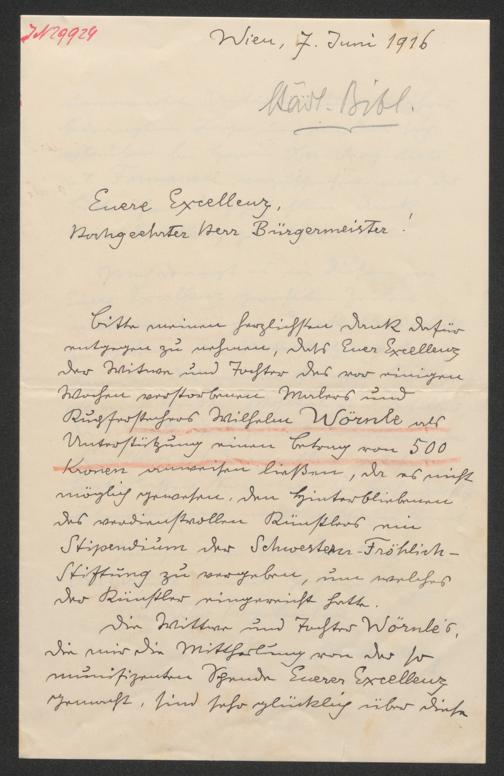 JN 9924
Wien, 7. Juni 1916
Städt. Bibl.
Euere Excellenz,
Hochgeehrter Herr Bürgermeister!
Bitte meinen herzlichsten Dank dafür
entgegen zu nehmen, dass Euer Excellenz
der Witwe und Tochter des vor einigen
Wochen verstorbenen Malers und
Kupferstechers Wilhelm Wörnle als
Unterstützung einen Betrag von 500
Kronen anweisen ließen, da es nicht
möglich gewesen, den Hinterbliebenen
des verdienstvollen Künstlers ein
Stipendium der Schwestern-Fröhlich-
Stiftung zu vergeben, um welches
der Künstler eingereicht hatte.
Die Wittwe und Tochter Wörnle's,
die mir die Mittheilung von der so
munifizenten Spende Euerer Excellenz
gemacht, sind sehr glücklich über diese